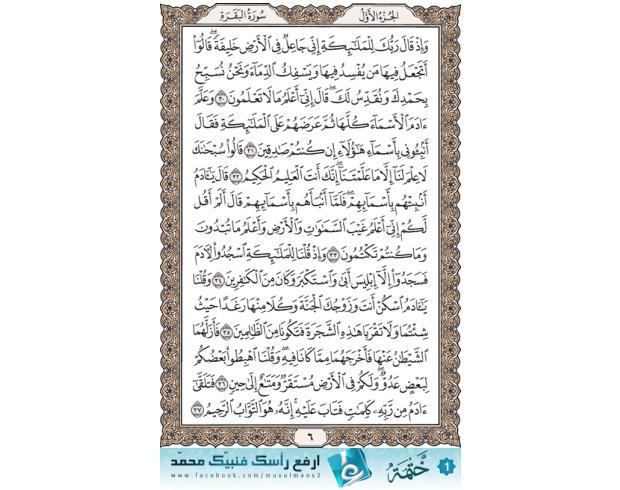 الجزء الأول
سورة البقرة
وَإِذْ قَالَ رَبُّكَ لِلْمَلَٰٓئِكَةِ إِنِّى جَاعِلٌ فِى ٱلْأَرْضِ خَلِيفَةً ۖ قَالُوٓا۟
أَتَجْعَلُ فِيهَا مَن يُفْسِدُ فِيهَا وَيَسْفِكُ ٱلدِّمَآءَ وَنَحْنُ نُسَبِّحُ
بِحَمْدِكَ وَنُقَدِّسُ لَكَ ۖ قَالَ إِنِّىٓ أَعْلَمُ مَا لَا تَعْلَمُونَ ٣٠ وَعَلَّمَ
ءَادَمَ ٱلْأَسْمَآءَ كُلَّهَا ثُمَّ عَرَضَهُمْ عَلَى ٱلْمَلَٰٓئِكَةِ فَقَالَ
أَنۢبِـُٔونِى بِأَسْمَآءِ هَٰٓؤُلَآءِ إِن كُنتُمْ صَٰدِقِينَ ٣١ قَالُوا۟ سُبْحَٰنَكَ
لَا عِلْمَ لَنَآ إِلَّا مَا عَلَّمْتَنَآ ۖ إِنَّكَ أَنتَ ٱلْعَلِيمُ ٱلْحَكِيمُ ٣٢ قَالَ يَٰٓـَٔادَمُ
أَنۢبِئْهُم بِأَسْمَآئِهِمْ ۖ فَلَمَّآ أَنۢبَأَهُم بِأَسْمَآئِهِمْ قَالَ أَلَمْ أَقُل
لَّكُمْ إِنِّىٓ أَعْلَمُ غَيْبَ ٱلسَّمَٰوَٰتِ وَٱلْأَرْضِ وَأَعْلَمُ مَا تُبْدُونَ
وَمَا كُنتُمْ تَكْتُمُونَ ٣٣ وَإِذْ قُلْنَا لِلْمَلَٰٓئِكَةِ ٱسْجُدُوا۟ لِـَٔادَمَ
فَسَجَدُوٓا۟ إِلَّآ إِبْلِيسَ أَبَىٰ وَٱسْتَكْبَرَ وَكَانَ مِنَ ٱلْكَٰفِرِينَ ٣٤ وَقُلْنَا
يَٰٓـَٔادَمُ ٱسْكُنْ أَنتَ وَزَوْجُكَ ٱلْجَنَّةَ وَكُلَا مِنْهَا رَغَدًا حَيْثُ
شِئْتُمَا وَلَا تَقْرَبَا هَٰذِهِ ٱلشَّجَرَةَ فَتَكُونَا مِنَ ٱلظَّٰلِمِينَ ٣٥ فَأَزَلَّهُمَا
ٱلشَّيْطَٰنُ عَنْهَا فَأَخْرَجَهُمَا مِمَّا كَانَا فِيهِ ۖ وَقُلْنَا ٱهْبِطُوا۟ بَعْضُكُمْ
لِبَعْضٍ عَدُوٌّ ۖ وَلَكُمْ فِى ٱلْأَرْضِ مُسْتَقَرٌّ وَمَتَٰعٌ إِلَىٰ حِينٍ ٣٦ فَتَلَقَّىٰٓ
ءَادَمُ مِن رَّبِّهِۦ كَلِمَٰتٍ فَتَابَ عَلَيْهِ ۚ إِنَّهُۥ هُوَ ٱلتَّوَّابُ ٱلرَّحِيمُ ٣٧
٦
١ ختمة
ارفع رأسك فنبيك محمد
www.facebook.com/musulmans2